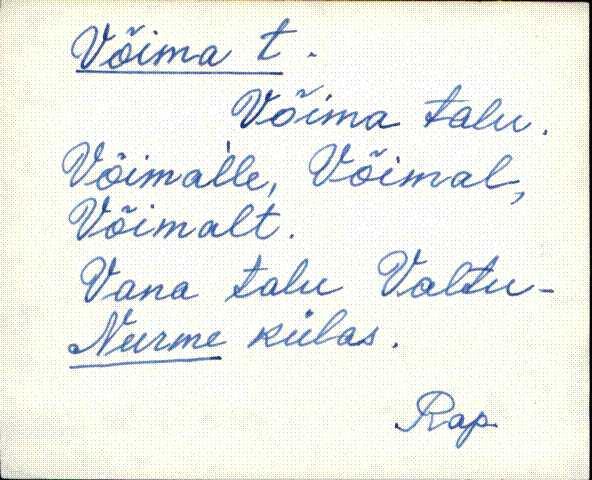 Võima t.
Võima talu.
Võimal̀le, Võimal,
Võimalt.
Vana talu Valtu-
Nurme külas.
Rap.